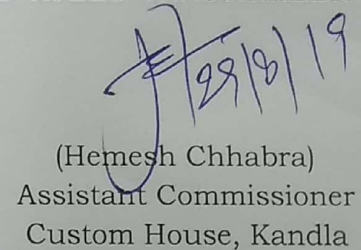 29/8/19
(Hemesh Chhabra)
Assistant Commissioner
Custom House, Kandla